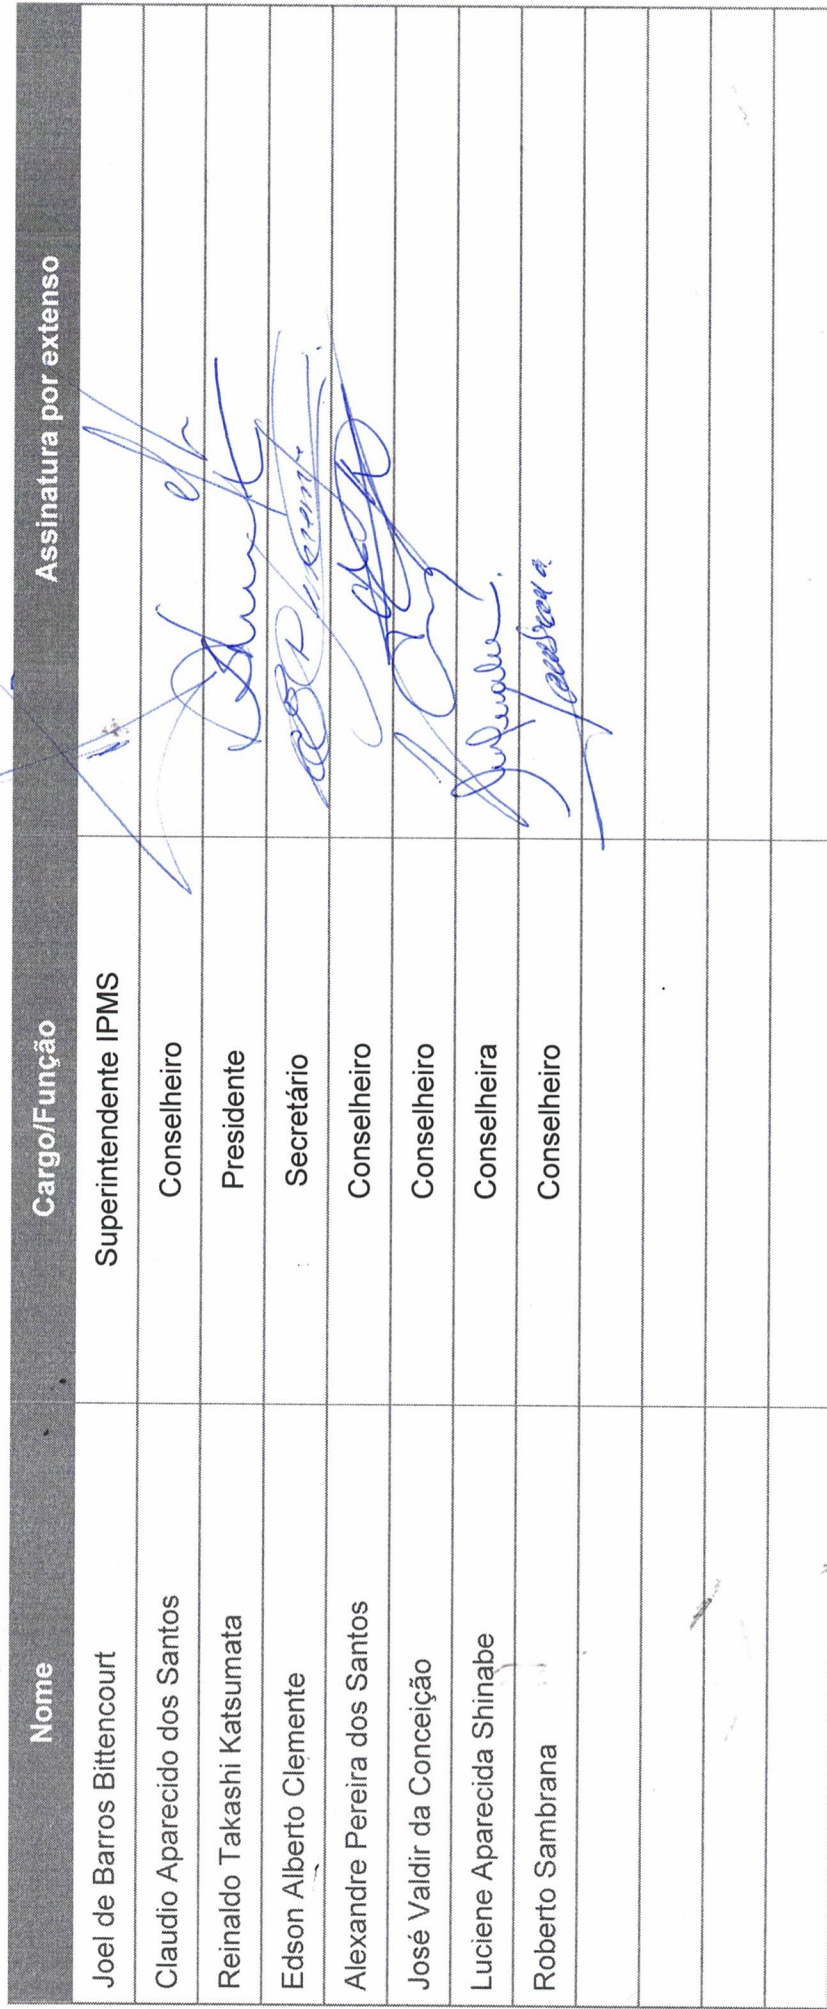 Nome Cargo/Função Assinatura por extenso
Joel de Barros Bittencourt Superintendente IPMS
Claudio Aparecido dos Santos Conselheiro
Reinaldo Takashi Katsumata Presidente
Edson Alberto Clemente Secretário
Alexandre Pereira dos Santos Conselheiro
José Valdir da Conceição Conselheiro
Luciene Aparecida Shinabe Conselheira
Roberto Sambrana Conselheiro